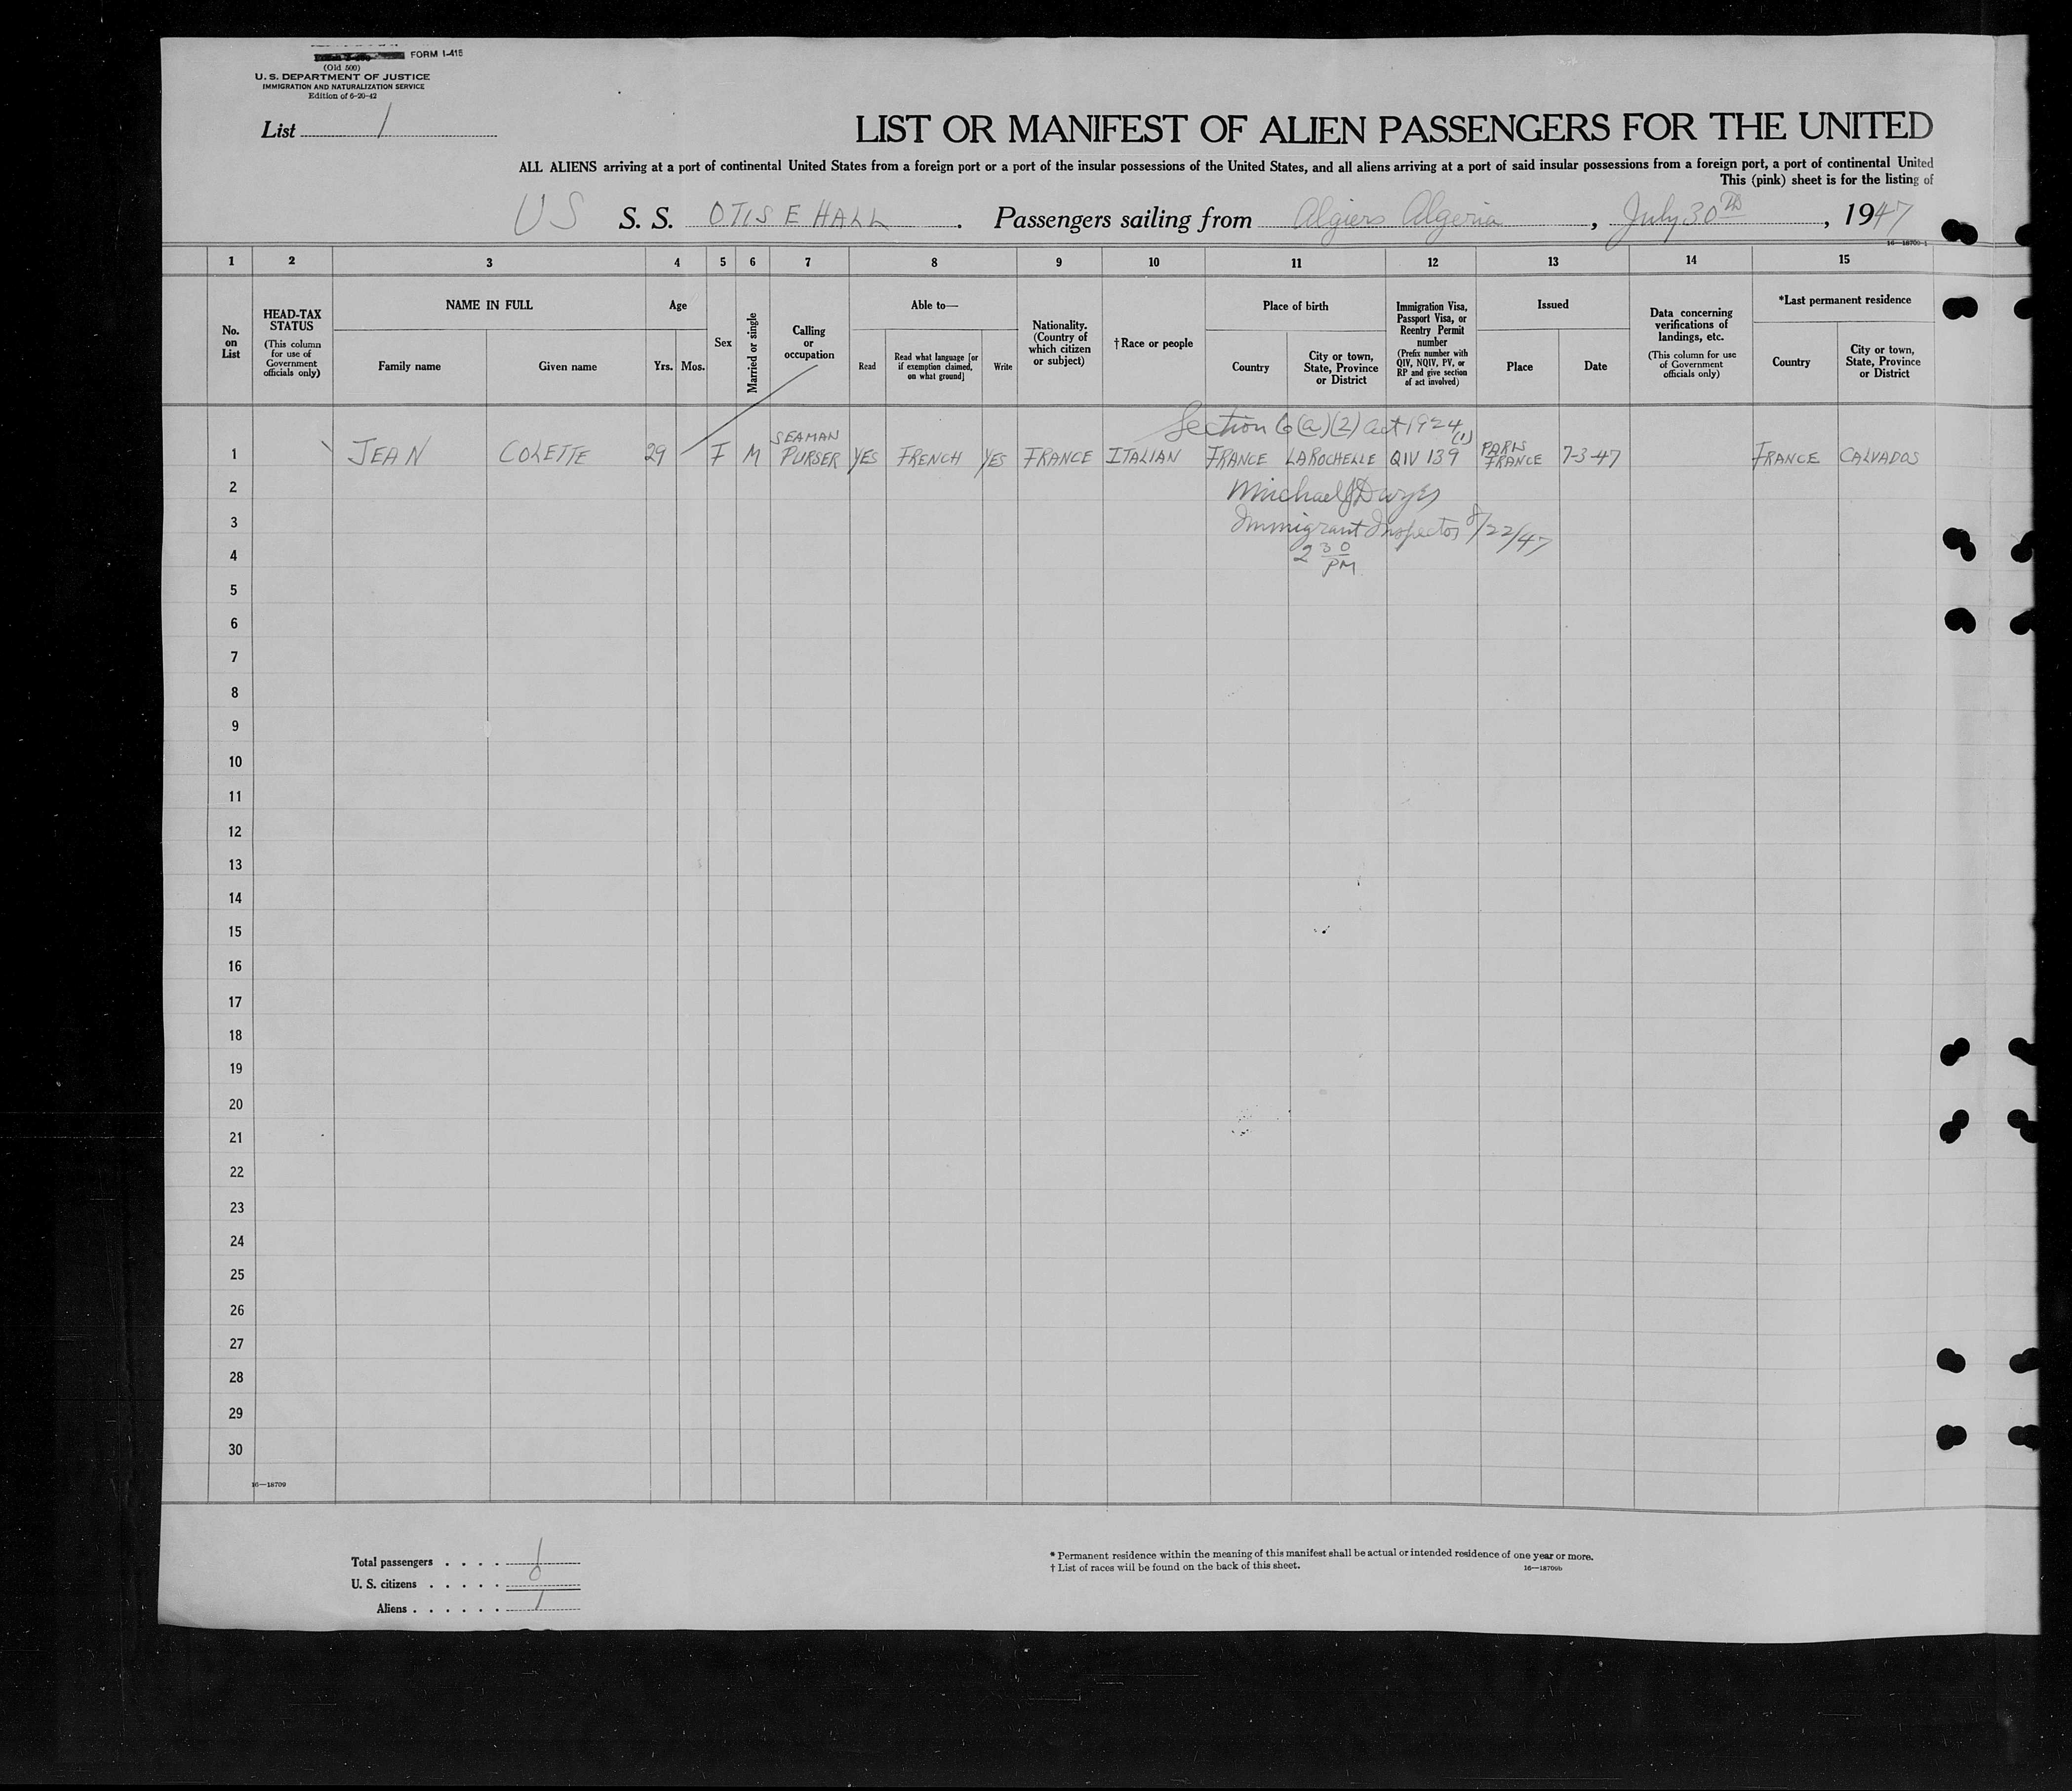 FORM I-415
(Old 500)
U. S. DEPARTMENT OF JUSTICE
IMMIGRATION AND NATURALIZATION SERVICE
Edition of 6-20-42
List 1
LIST OR MANIFEST OF ALIEN PASSENGERS FOR THE UNITED
ALL ALIENS arriving at a port of continental United States from a foreign port or a port of the insular possessions of the United States, and all aliens arriving at a port of said insular possessions from a foreign port, a port of continental United
This (pink) sheet is for the listing of
US S. S. OTIS E HALL. Passengers sailing from Algiers Algeria, July 30th, 1947
16—18709-1
1 2 3 4 5 6 7 8 9 10 11 12 13 14 15
No. on List
HEAD-TAX STATUS
(This column for use of Government officials only)
NAME IN FULL
Family name
Given name
Age
Yrs. Mos.
Sex
Married or single
Calling or occupation
Able to—
Read
Read what language [or if exemption claimed, on what ground]
Write
Nationality. (Country of which citizen or subject)
†Race or people
Place of birth
Country
City or town, State, Province or District
Immigration Visa, Passport Visa, or Reentry Permit number
(Prefix number with QIV, NQIV, PV, or RP and give section of act involved)
Issued
Place
Date
Data concerning verifications of landings, etc.
(This column for use of Government officials only)
*Last permanent residence
Country
City or town, State, Province or District
Section 6(a)(2) act 1924
(1)
1 JEAN COLETTE 29 F M SEAMAN PURSER YES FRENCH YES FRANCE ITALIAN FRANCE LAROCHELLE QIV 139 PARIS FRANCE 7-3-47 FRANCE CALVADOS
2 Michael J Dwyer
3 Immigrant Inspector 8/22/47
4 2 30 PM
5
6
7
8
9
10
11
12
13
14
15
16
17
18
19
20
21
22
23
24
25
26
27
28
29
30
16—18709
Total passengers . . . . 1
U. S. citizens . . . . . 0
Aliens . . . . . . 1
* Permanent residence within the meaning of this manifest shall be actual or intended residence of one year or more.
† List of races will be found on the back of this sheet.
16—18709b